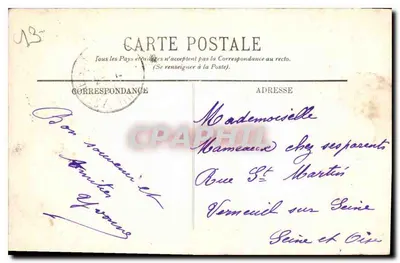 13-
CARTE POSTALE
Tous les Pays étrangers n'acceptent pas la Correspondance au recto.
(Se renseigner à la Poste).
CORRESPONDANCE
Bon souvenir et
Amitiés
Yvonne
ADRESSE
Mademoiselle
Mameaux chez ses parents
Rue St Martin
Verneuil sur Seine
Seine et Oise
CPAPHIL